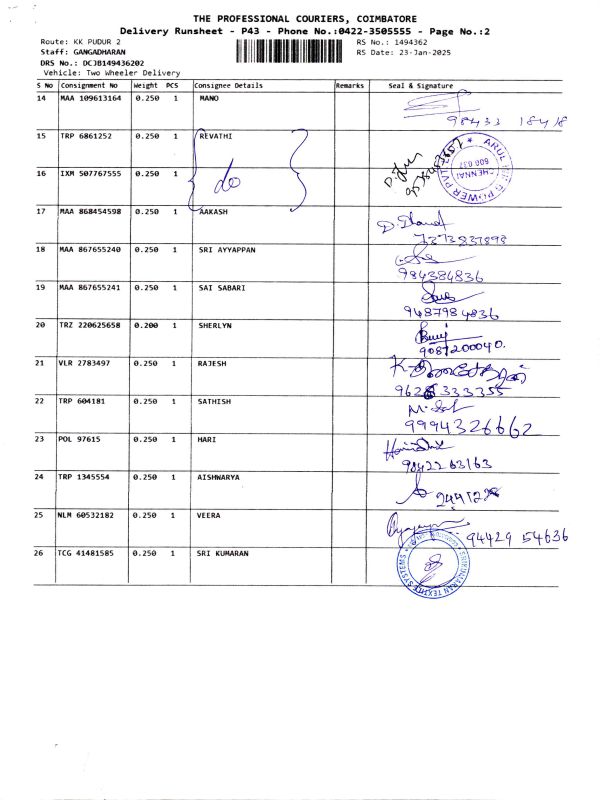 THE PROFESSIONAL COURIERS, COIMBATORE
Delivery Runsheet - P43 - Phone No.:0422-3505555 - Page No.:2
Route: KK PUDUR 2 RS No.: 1494362
Staff: GANGADHARAN RS Date: 23-Jan-2025
DRS No.: DCJB149436202
Vehicle: Two Wheeler Delivery
S No Consignment No Weight PCS Consignee Details Remarks Seal & Signature
14 MAA 109613164 0.250 1 MANO
98433 18418
15 TRP 6861252 0.250 1 REVATHI
16 IXM 507767555 0.250 1 do
CHENNAI
600 037
17 MAA 868454598 0.250 1 AAKASH
7373837898
18 MAA 867655240 0.250 1 SRI AYYAPPAN
984384836
19 MAA 867655241 0.250 1 SAI SABARI
9487984836
20 TRZ 220625658 0.200 1 SHERLYN
9087200040.
21 VLR 2783497 0.250 1 RAJESH
333355
22 TRP 604181 0.250 1 SATHISH
9994326662
23 POL 97615 0.250 1 HARI
9842263163
24 TRP 1345554 0.250 1 AISHWARYA
25 NLM 60532182 0.250 1 VEERA
94429 54636
26 TCG 41481585 0.250 1 SRI KUMARAN
SRIKUMARAN TEXTILE SYSTEMS